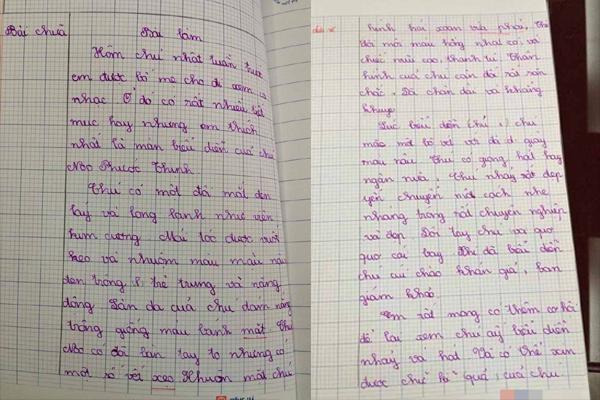 Bài chữa
Bài làm
Hôm chủ nhật tuần trước
em được bố mẹ cho đi xem ca
nhạc. Ở đó có rất nhiều tiết
mục hay nhưng em thích
nhất là màn biểu diễn của chú
Noo Phước Thịnh.
Chú có một đôi mắt đen
láy và long lanh như viên
kim cương. Mái tóc được vuốt
keo và nhuộm màu
đen trông trẻ trung và năng
động. Làn da của chú
trông giống màu bánh mật. Chú
Noo có đôi bàn tay to nhưng có
một số vết sẹo. Khuôn mặt chú
hình trái xoan vừa phải,
đôi môi màu hồng nhạt có
chiếc mũi cao, thanh tú. Thân
hình của chú cân đối rất săn
chắc. Đôi chân dài và không
khuỵu.
Lúc biểu diễn, chú
mặc một bộ vét với đôi giày
màu nâu. Chú có giọng hát hay
ngân nga. Chú nhảy rất đẹp
chuyển một cách nhẹ
nhàng trông rất chuyên nghiệp
và đẹp. Đôi tay chú
Khi đã biểu diễn
chú cúi chào khán giả, ban
giám khảo.
Em rất mong có thêm cơ hội
để lại xem chú ấy biểu diễn
nhảy và hát. Và có thể xin
được chữ kí của chú.